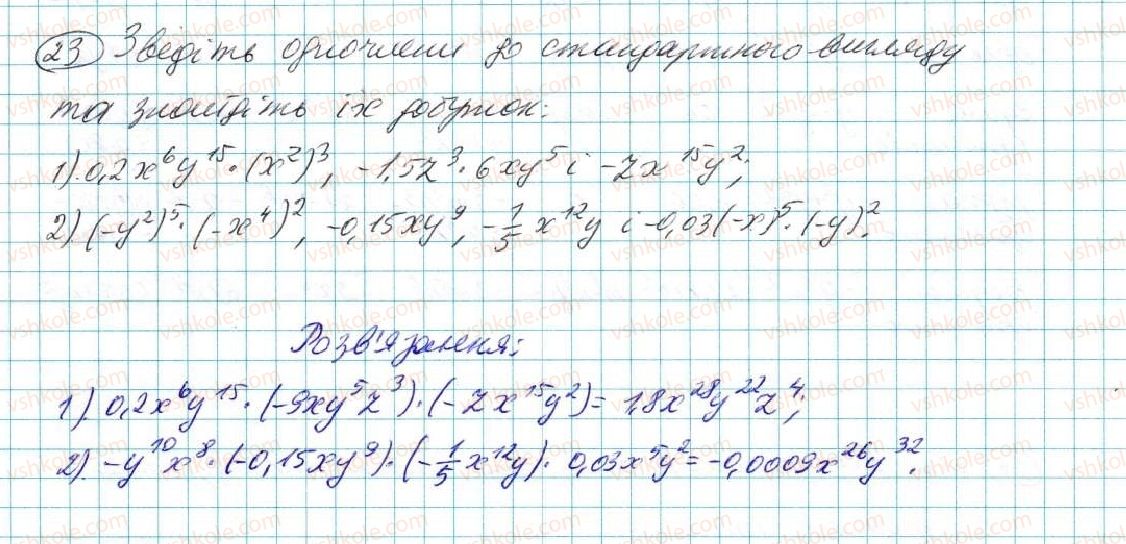 23 Зведіть одночлени до стандартного вигляду
та знайдіть їх добуток:
1). 0,2x⁶y¹⁵·(x²)³, -1,5z³·6xy⁵ і -zx¹⁵y²;
2). (-y²)⁵·(-x⁴)², -0,15xy⁹, -1/5 x¹²y і -0,03(-x)⁵·(-y)².
Розв'язання:
1). 0,2x⁶y¹⁵·(-9xy⁵z³)·(-zx¹⁵y²)= 1,8x²⁸y²²z⁴;
2). -y¹⁰x⁸·(-0,15xy⁹)·(-1/5 x¹²y)· 0,03x⁵y²= -0,0009x²⁶y³².